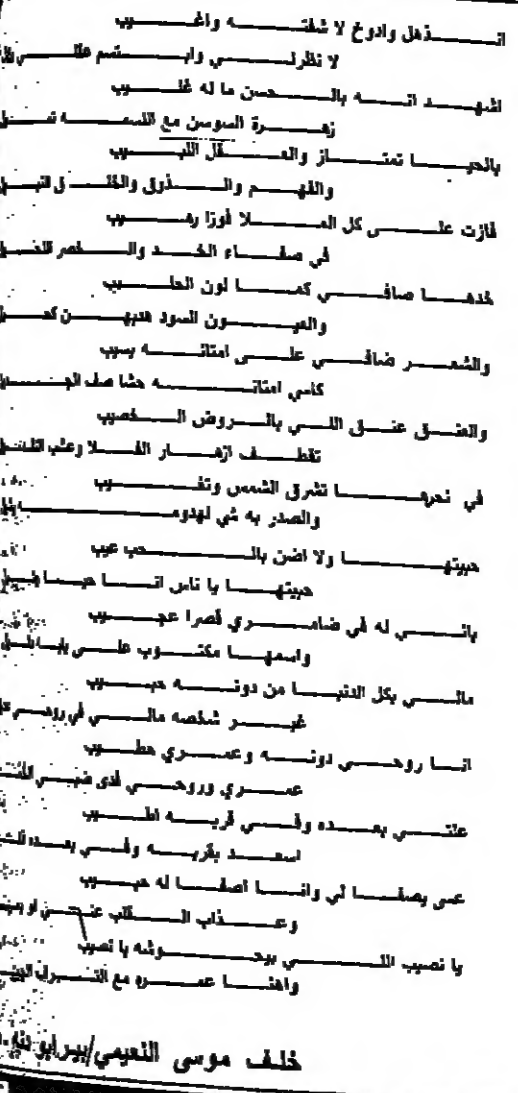 انذهل وادوخ لا شفته واغيب
لا نظرلي وابتسم
اشهد انه بالحسن ما له غليب
زهرة السوسن مع النسمه
بالحيا تمتاز والعقل اللبيب
والفهم والذوق والخلق النبيل
فازت على كل الملا فوزا رهيب
في صفاء الخد والخصر النحيل
خدها صافي كما لون الحليب
والعيون السود هدبهن
والشعر ضافي على امتانه يسيب
كاسي امتانه حشا صف
والعنق عنق اللي بالروض الخصيب
تقطف ازهار الفلا وعشب
في نحرها تشرق الشمس وتغيب
والصدر به شي لهدومه
حبيتها ولا اضن بالحب عيب
حبيتها يا ناس انا
باني له في ضامري قصرا عجيب
واسمها مكتوب على
مالي بكل الدنيا من دونه حبيب
غير شخصه مالي في روحي
انا روحي دونه وعمري هطيب
عمري وروحي فدى ضبي
علتي بعده وفي قربه اطيب
اسعد بقربه وفي بعده
عسى يصفا لي وانا اصفا له حبيب
وعذاب القلب عني لو
يا نصيب اللي بيحوشه يا نصيب
واهنا عمره مع
خلف موسى النعيمي/